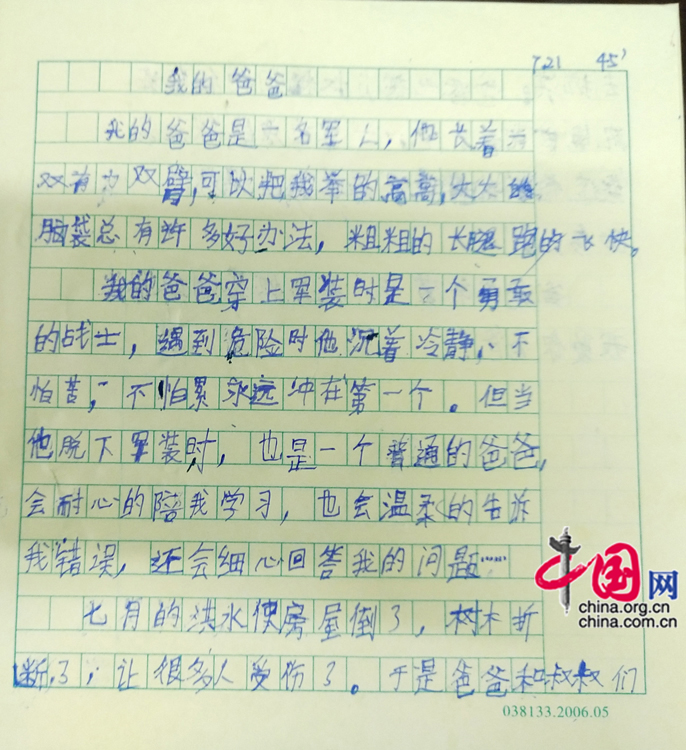 721 45'
我的爸爸
我的爸爸是一名军人，他长着一
双有力双臂，可以把我举的高高，大大的
脑袋总有许多好办法，粗粗的长腿跑的飞快。
我的爸爸穿上军装时是一个勇敢
的战士，遇到危险时他沉着冷静，不
怕苦，不怕累永远冲在第一个。但当
他脱下军装时，也是一个普通的爸爸，
会耐心的陪我学习，也会温柔的告诉
我错误，还会细心回答我的问题……
七月的洪水使房屋倒了，树木折
断了，让很多人受伤了。于是爸爸和叔叔们
中国网
china.org.cn
china.com.cn
038133.2006.05